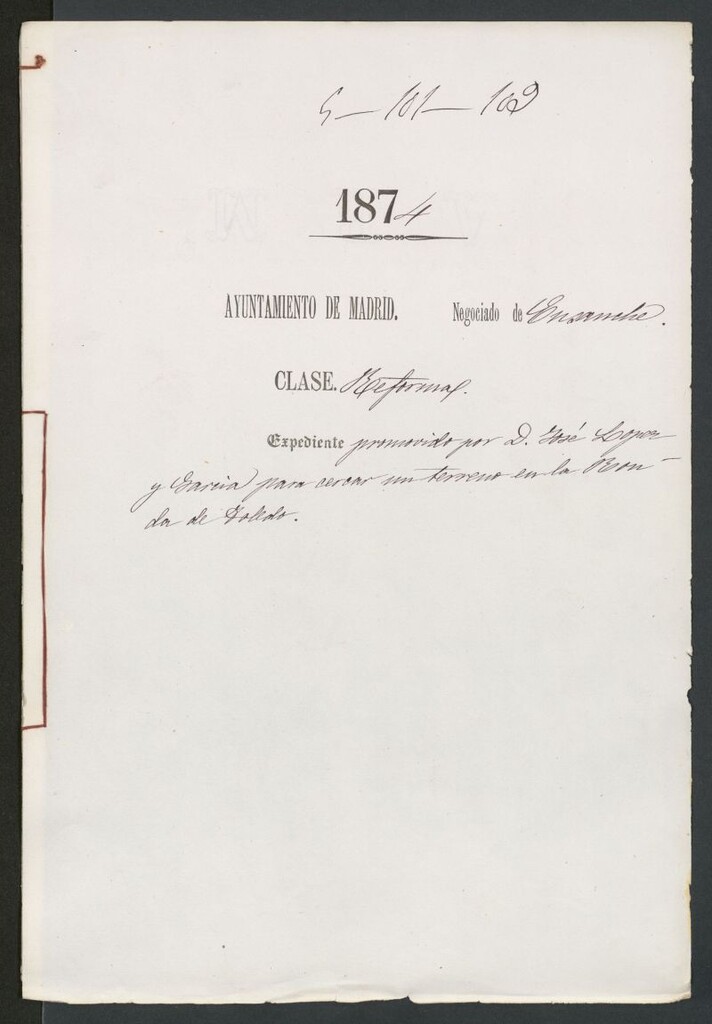 5-101-109
1874
AYUNTAMIENTO DE MADRID. Negociado de Ensanche.
CLASE. Reformas.
Expediente promovido por D. José Lopez
y Garcia para cercar un terreno en la Ron-
da de Toledo.